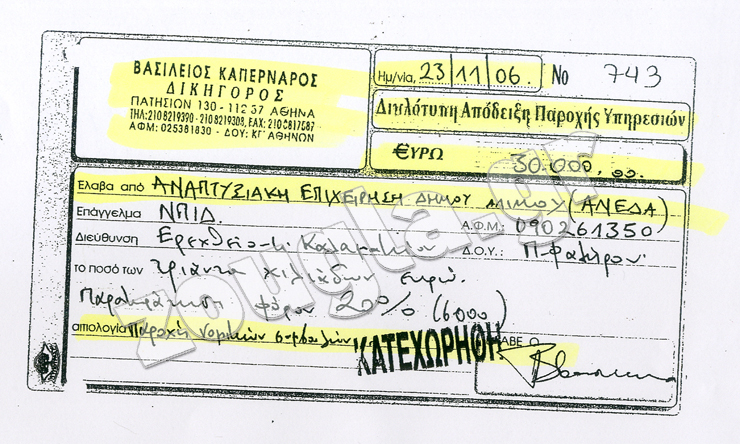 ΒΑΣΙΛΕΙΟΣ ΚΑΠΕΡΝΑΡΟΣ
ΔΙΚΗΓΟΡΟΣ
ΠΑΤΗΣΙΩΝ 130 - 112 57 ΑΘΗΝΑ
ΤΗΛ: 210 8219390 - 210 8219308, FAX: 210 8817687
ΑΦΜ: 025381830 - ΔΟΥ: ΚΓ' ΑΘΗΝΩΝ
Ημ/νία, 23 11 06. No 743
Διπλότυπη Απόδειξη Παροχής Υπηρεσιών
€ΥΡΩ 30.000,00.
Έλαβα από ΑΝΑΠΤΥΞΙΑΚΗ ΕΠΙΧΕΙΡΗΣΗ ΔΗΜΟΥ ΑΛΙΜΟΥ (ΑΝΕΔΑ)
Επάγγελμα ΝΠΙΔ. Α.Φ.Μ.: 090261350
Διεύθυνση Δ.Ο.Υ.: Π. Φαλήρου
το ποσό των τριάντα χιλιάδων ευρώ.
Παρακράτηση φόρου 20% (6000)
αιτιολογία Παροχή νομικών συμβουλών
ΚΑΤΕΧΩΡΗΘΗ
zougla.gr